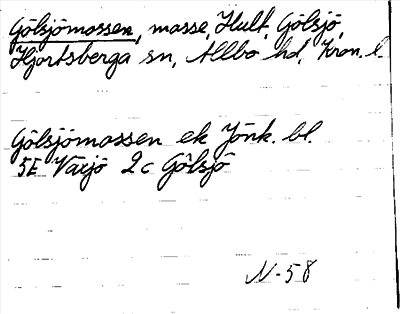 Gölsjömossen, mosse, Hult, Gölsjö,
Hjortsberga sn, Allbo hd, Kron. l.
Gölsjömossen ek Jönk. bl.
5E Växjö 2c Gölsjö
N-58